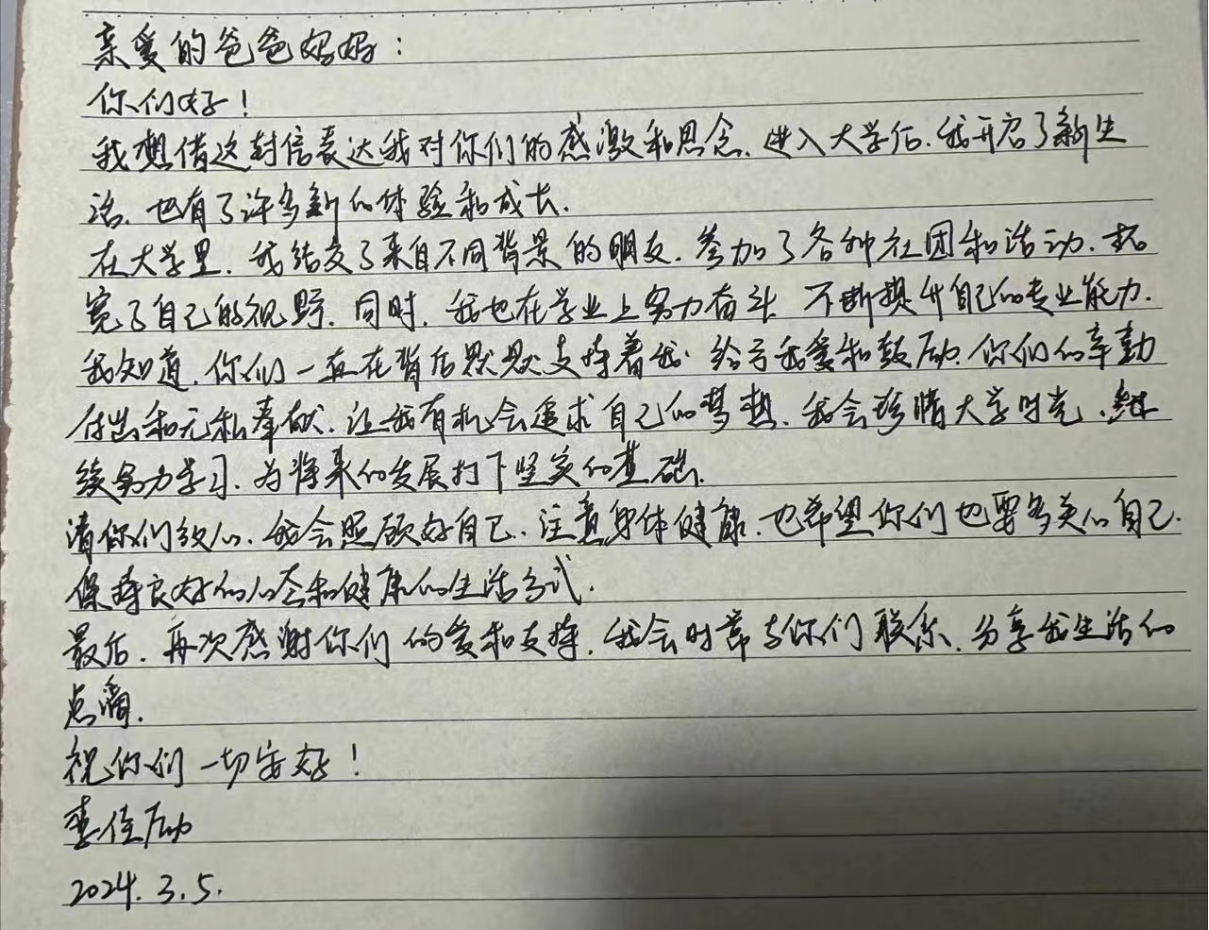 亲爱的爸爸妈妈：
你们好！
我想借这封信表达我对你们的感激和思念.进入大学后.我开启了新生
活.也有了许多新的体验和成长.
在大学里.我结交了来自不同背景的朋友.参加了各种社团和活动.拓
宽了自己的视野.同时.我也在学业上努力奋斗 不断提升自己的专业能力.
我知道.你们一直在背后默默支持着我.给予我爱和鼓励.你们的辛勤
付出和无私奉献.让我有机会追求自己的梦想.我会珍惜大学时光.继
续努力学习.为将来的发展打下坚实的基础.
请你们放心.我会照顾好自己.注意身体健康.也希望你们也要多关心自己.
保持良好的心态和健康的生活方式.
最后.再次感谢你们的爱和支持.我会时常与你们联系.分享我生活的
点滴.
祝你们一切安好！
佳励
2024.3.5.